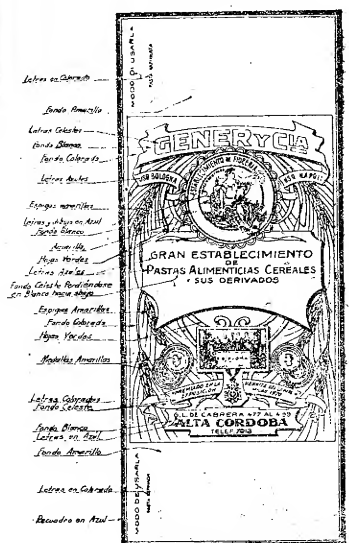 Letras en Colorado
Fondo Amarillo
Letras Celestes
Fondo Blanco
Fondo Colorado
Letras Azules
Espigas amarillas
Letras y dibujo en Azul
Fondo Blanco
Amarillo
Hojas Verdes
Letras Azules
Fondo Celeste Perdiéndose
en Blanco hacia abajo
Espigas Amarillas
Fondo Colorado
Hojas Verdes
Medallas Amarillas
Letras Coloradas
Fondo Celeste
Fondo Blanco
Letras en Azul
Fondo Amarillo
Letras en Colorado
Recuadro en Azul
MODO DE USARLA
GENER Y CIA
USO BOLOGNA
USO NAPOLI
GRAN ESTABLECIMIENTO
DE
PASTAS ALIMENTICIAS CEREALES
Y SUS DERIVADOS
PREMIADO EN LA
EXPOSICION
D.L. DE CABRERA 477 AL 499
ALTA CORDOBA
TELEF. 7013
MODO DE USARLA